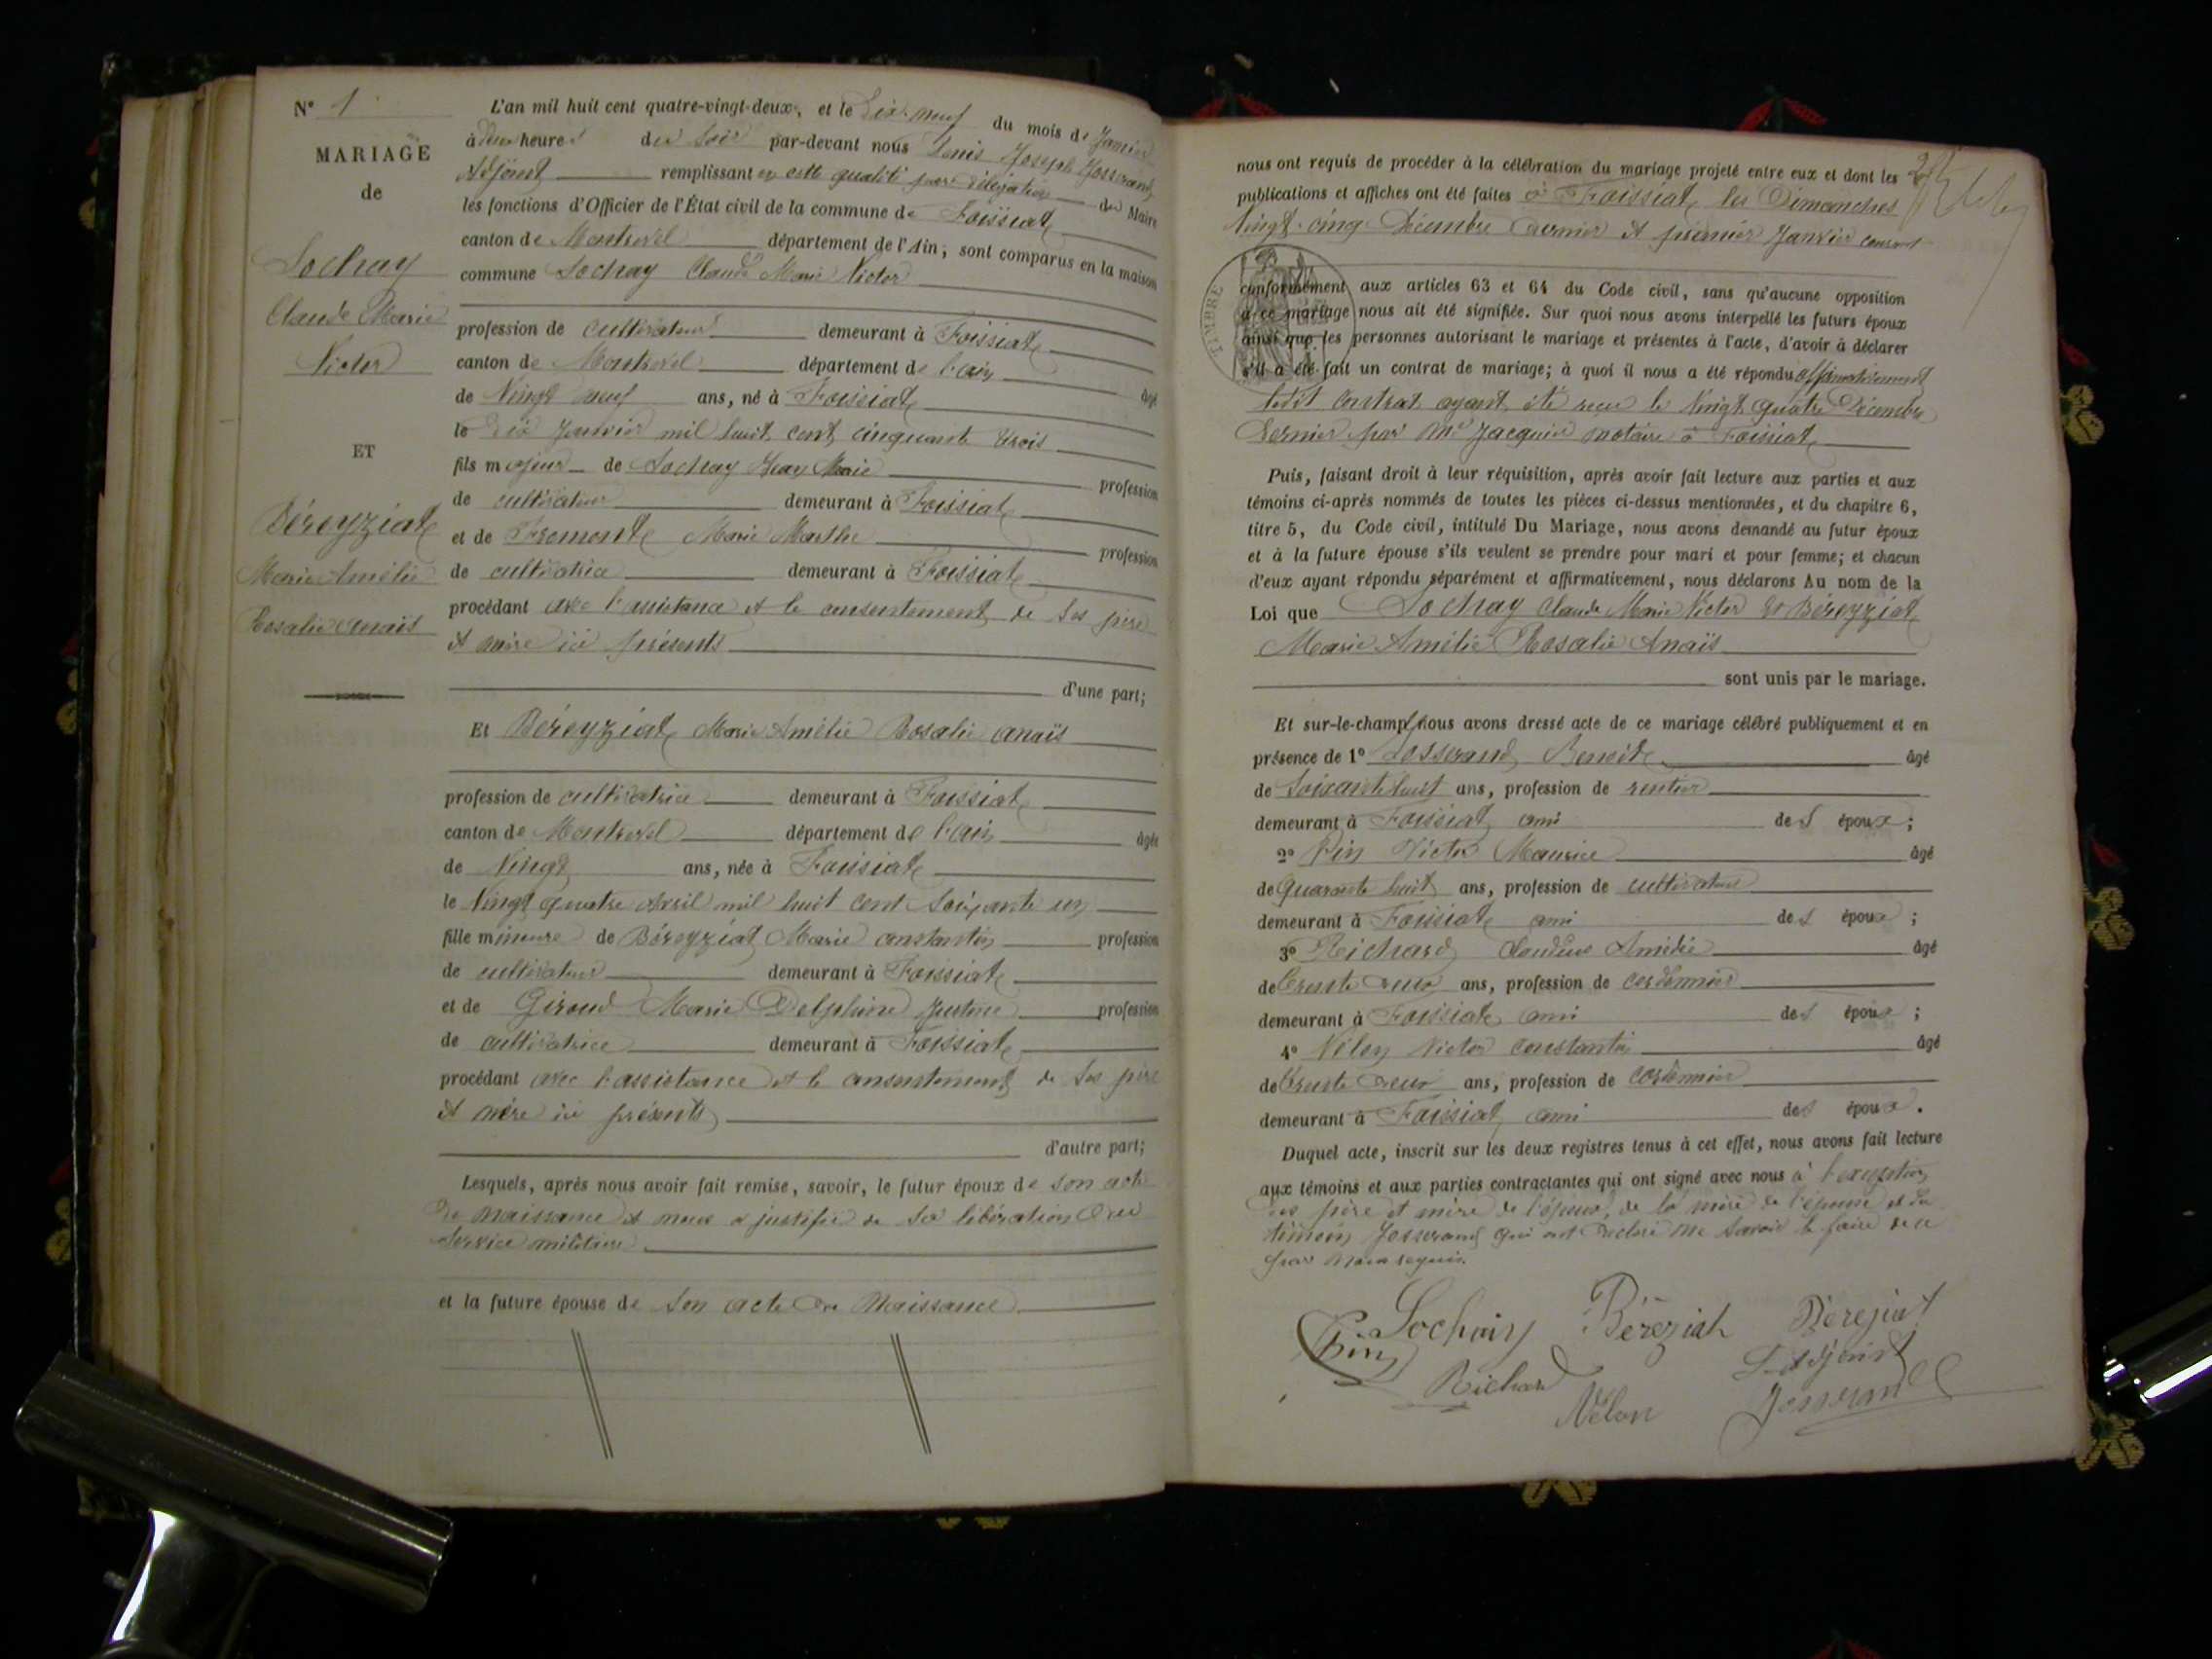 N° 1
MARIAGE
de
Sochay
Claude Marie
Victor
ET
Béreyziat
Marie Amélie
Rosalie Anaïs
L'an mil huit cent quatre-vingt-deux, et le dix-neuf du mois de Janvier
à heures du soir par-devant nous Louis Joseph Josserand
Adjoint remplissant en cette qualité par délégation du Maire
les fonctions d'Officier de l'État civil de la commune de Foissiat
canton de Montrevel département de l'Ain; sont comparus en la maison
commune Sochay Claude Marie Victor
profession de cultivateur demeurant à Foissiat
canton de Montrevel département de l'ain âgé
de Vingt neuf ans, né à Foissiat
le dix Janvier mil huit cent cinquante trois
fils majeur de Sochay Jean Marie profession
de cultivateur demeurant à Foissiat
et de Fromont Marie Marthe profession
de cultivatrice demeurant à Foissiat
procédant avec l'assistance et le consentement de ses père
et mère ici présents
d'une part;
Et Béreyziat Marie Amélie Rosalie anaïs
profession de cultivatrice demeurant à Foissiat
canton de Montrevel département de l'ain âgée
de Vingt ans, née à Foissiat
le Vingt quatre avril mil huit cent soixante un
fille mineure de Béreyziat Marie constantin profession
de cultivateur demeurant à Foissiat
et de Giroud Marie Delphine Justine profession
de cultivatrice demeurant à Foissiat
procédant avec l'assistance et le consentement de ses père
et mère ici présents
d'autre part;
Lesquels, après nous avoir fait remise, savoir, le futur époux de son acte
de naissance et nous a justifié de sa libération du
service militaire
et la future épouse de son acte de naissance
nous ont requis de procéder à la célébration du mariage projeté entre eux et dont les
publications et affiches ont été faites à Foissiat les Dimanches
Vingt-cinq Décembre dernier et premier Janvier courant
TIMBRE
conformément aux articles 63 et 64 du Code civil, sans qu'aucune opposition
à ce mariage nous ait été signifiée. Sur quoi nous avons interpellé les futurs époux
ainsi que les personnes autorisant le mariage et présentes à l'acte, d'avoir à déclarer
s'il a été fait un contrat de mariage; à quoi il nous a été répondu affirmativement
ledit contrat ayant été reçu le Vingt quatre Décembre
dernier par Me Jacquier notaire à Foissiat
Puis, faisant droit à leur réquisition, après avoir fait lecture aux parties et aux
témoins ci-après nommés de toutes les pièces ci-dessus mentionnées, et du chapitre 6,
titre 5, du Code civil, intitulé Du Mariage, nous avons demandé au futur époux
et à la future épouse s'ils veulent se prendre pour mari et pour femme; et chacun
d'eux ayant répondu séparément et affirmativement, nous déclarons Au nom de la
Loi que Sochay Claude Marie Victor et Béreyziat
Marie Amélie Rosalie Anaïs
sont unis par le mariage.
Et sur-le-champ nous avons dressé acte de ce mariage célébré publiquement et en
présence de 1° Josserand Benoit âgé
de Soixante huit ans, profession de rentier
demeurant à Foissiat ami des époux;
2° Pin Victor Maurice âgé
de quarante huit ans, profession de cultivateur
demeurant à Foissiat ami des époux;
3° Richard Claudius Amédée âgé
de trente deux ans, profession de cordonnier
demeurant à Foissiat ami des époux;
4° Vélon Victor constantin âgé
de trente deux ans, profession de cordonnier
demeurant à Foissiat ami des époux.
Duquel acte, inscrit sur les deux registres tenus à cet effet, nous avons fait lecture
aux témoins et aux parties contractantes qui ont signé avec nous à l'exception
des père et mère de l'époux, de la mère de l'épouse et du
témoin Josserand qui ont déclaré ne savoir le faire de ce
par nous requis.
Sochay Béreziat Berejiat
Pin L'adjoint
Richard Vélon Josserand